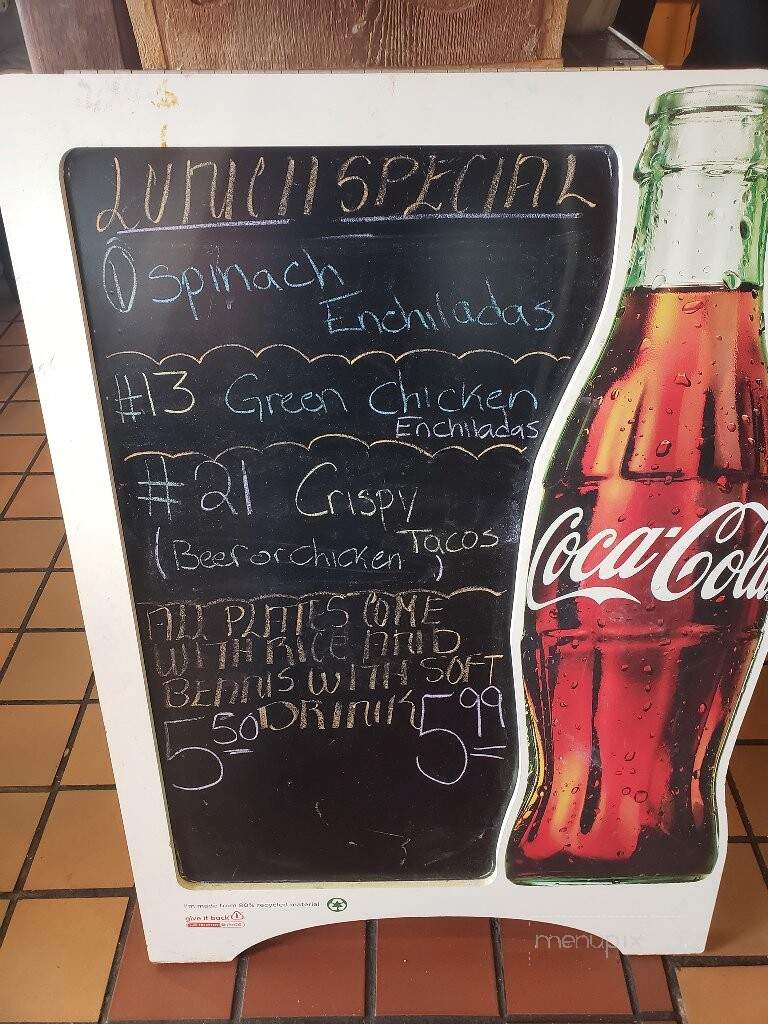 LUNCH SPECIAL
① Spinach
Enchiladas
#13 Green Chicken
Enchiladas
#21 Crispy
Tacos
(Beef or chicken)
ALL PLATES COME
WITH RICE AND
BEANS WITH SOFT
DRINK
5.50 5.99
Coca-Cola
I'm made from 80% recycled material
give it back
menupix